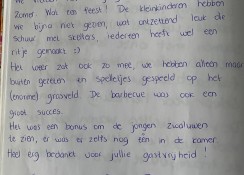 zomer. Wat een feest! De kleinkinderen hebben
we bijna niet gezien, wat ontzettend leuk die
schuur met skelters, iedereen heeft wel een
ritje gemaakt :)
Het weer zat ook zo mee, we hebben alleen maar
buiten gegeten en spelletjes gespeeld op het
(enorme) grasveld. De barbecue was ook een
groot succes.
Het was een bonus om de jongen zwaluwen
te zien, er was er zelfs nog één in de kamer.
Heel erg bedankt voor jullie gastvrijheid!